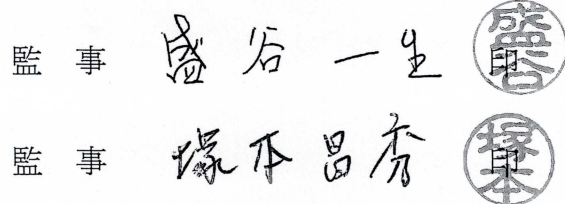 監 事 盛 谷 一 生 印 盛谷
監 事 塚 本 昌 秀 印 塚本